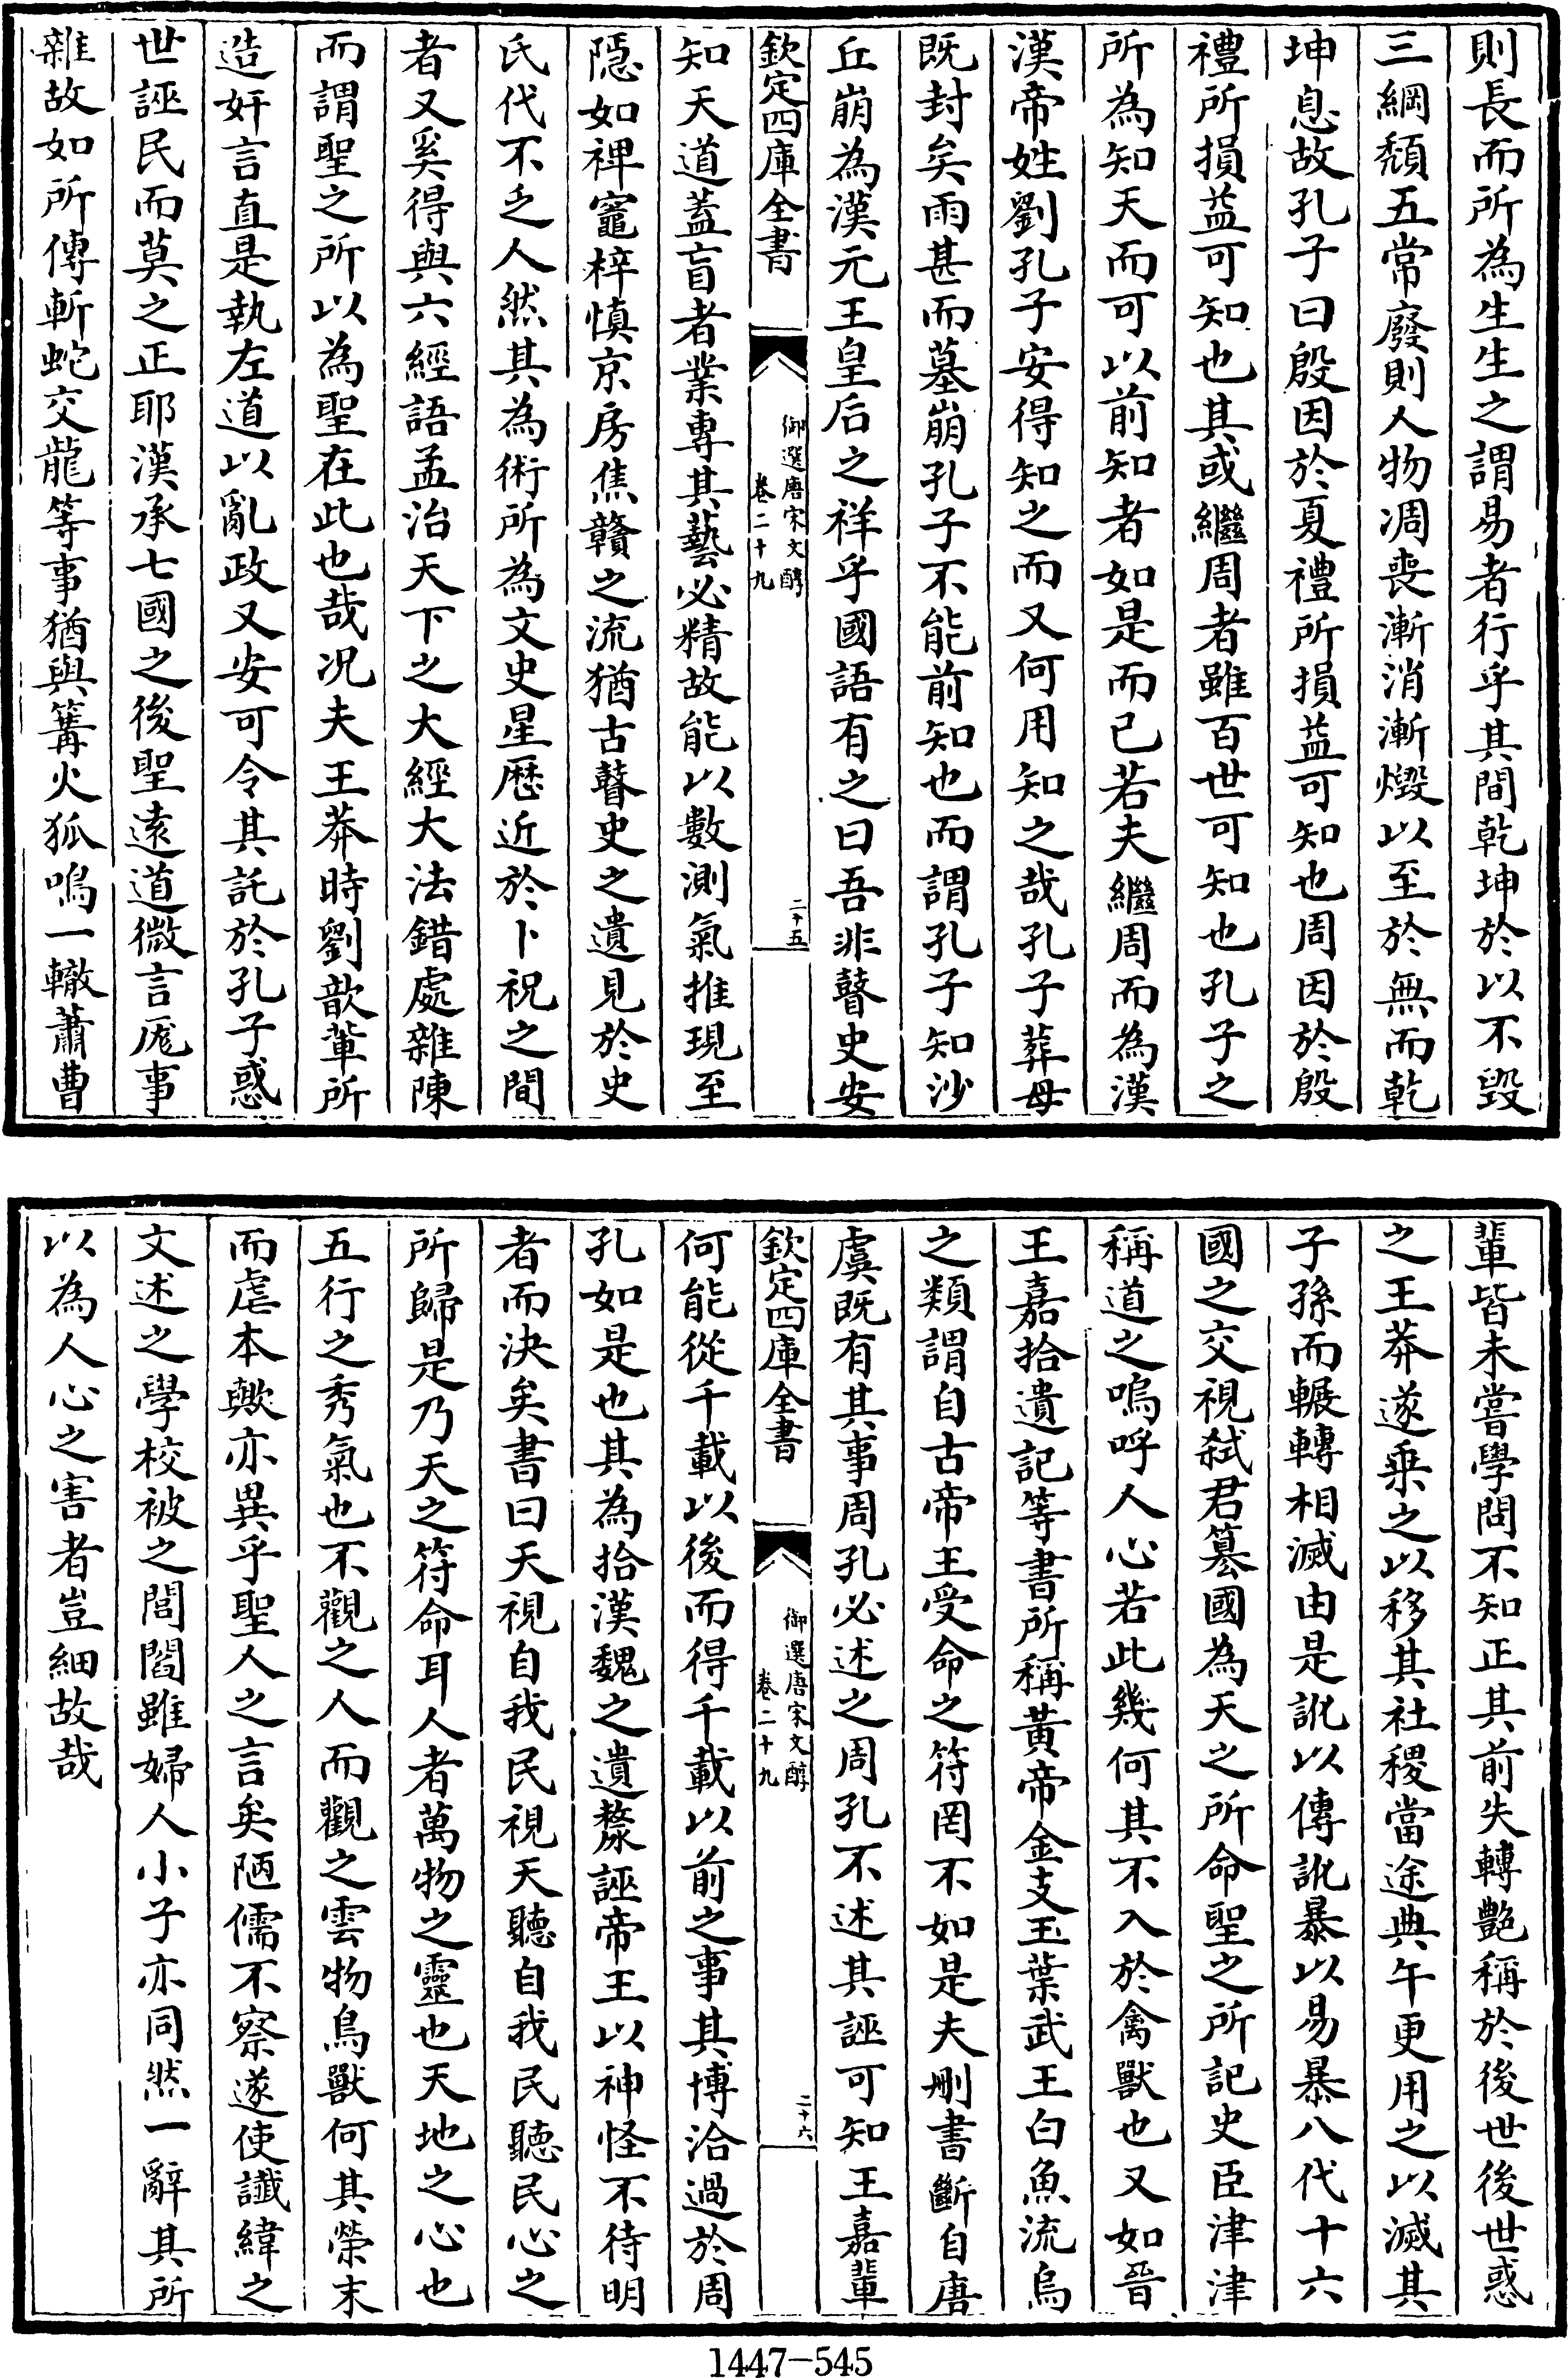 則長而所為生生之謂易者行乎其間乾坤於以不毀
三綱頽五常廢則人物凋喪漸消漸燬以至於無而乾
坤息故孔子曰殷因於夏禮所損益可知也周因於殷
禮所損益可知也其或繼周者雖百世可知也孔子之
所為知天而可以前知者如是而已若夫繼周而為漢
漢帝姓劉孔子安得知之而又何用知之哉孔子葬母
既封矣雨甚而墓崩孔子不能前知也而謂孔子知沙
丘崩為漢元王皇后之祥乎國語有之曰吾非瞽史安
欽定四庫全書
御選唐宋文醇
卷二十九
二十五
知天道蓋盲者業專其藝必精故能以數測氣推現至
隱如禆竈梓慎京房焦贛之流猶古瞽史之遺見於史
氏代不乏人然其為術所為文史星厯近於卜祝之間
者又奚得與六經語孟治天下之大經大法錯處雜陳
而謂聖之所以為聖在此也哉况夫王莽時劉歆輩所
造奸言直是執左道以亂政又安可令其託於孔子惑
世誣民而莫之正耶漢承七國之後聖遠道微言厖事
雜故如所傳斬蛇交龍等事猶與篝火狐鳴一轍蕭曹
輩皆未嘗學問不知正其前失轉艶稱於後世後世惑
之王莽遂乗之以移其社稷當途典午更用之以滅其
子孫而輾轉相滅由是訛以傳訛暴以易暴八代十六
國之交視弑君簒國為天之所命聖之所記史臣津津
稱道之嗚呼人心若此幾何其不入於禽獸也又如晉
王嘉拾遺記等書所稱黃帝金支玉葉武王白魚流烏
之類謂自古帝王受命之符罔不如是夫刪書斷自唐
虞既有其事周孔必述之周孔不述其誣可知王嘉輩
欽定四庫全書
御選唐宋文醇
卷二十九
二十六
何能從千載以後而得千載以前之事其博洽過於周
孔如是也其為拾漢魏之遺漦誣帝王以神怪不待明
者而決矣書曰天視自我民視天聽自我民聽民心之
所歸是乃天之符命耳人者萬物之靈也天地之心也
五行之秀氣也不觀之人而觀之雲物鳥獸何其榮末
而虐本歟亦異乎聖人之言矣陋儒不察遂使讖緯之
文述之學校被之閭閻雖婦人小子亦同然一辭其所
以為人心之害者豈細故哉
1447-545